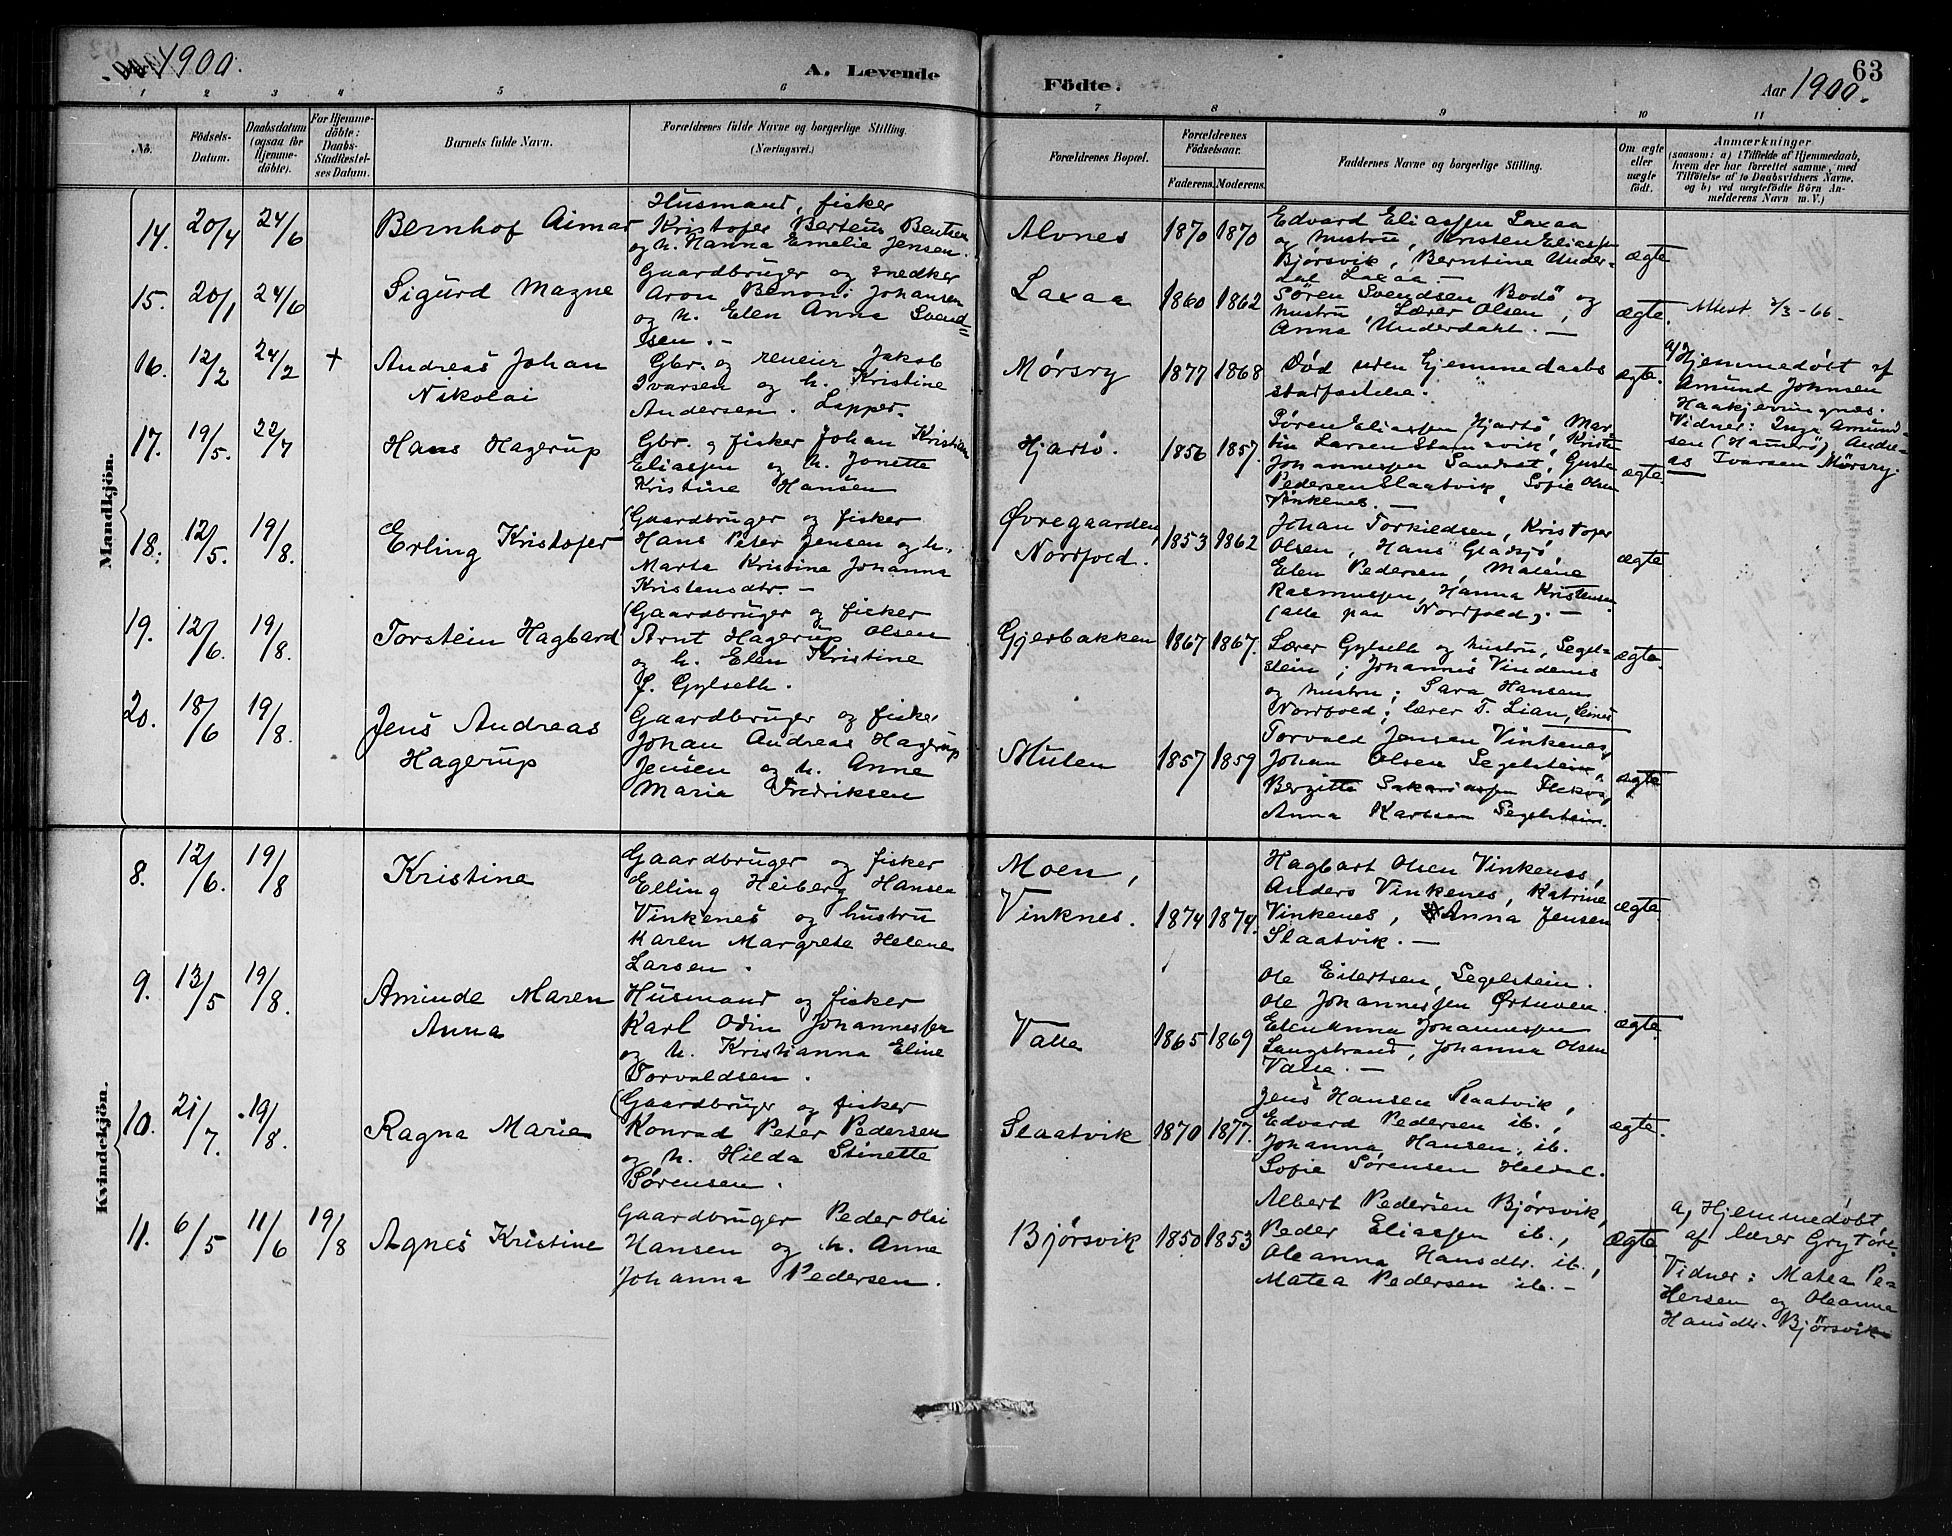 1900.
A. Levende
Födte.
Aar 1900.
63
1 2 3 4 5 6 7 8 9 10 11
No.
Födsels-Datum.
Daabsdatum (ogsaa for Hjemme-döbte).
For Hjemme-döbte: Daabs-Stadfæstel-ses Datum.
Barnets fulde Navn.
Forældrenes fulde Navne og borgerlige Stilling.
(Næringsvei.)
Forældrenes Bopæl.
Forældrenes Födselsaar.
Faderens. Moderens.
Faddernes Navne og borgerlige Stilling.
Om ægte eller uægte födt.
Anmærkninger
(saasom: a) i Tilfælde af Hjemmedaab, hvem der har forrettet samme, med Tilföielse af to Daabsvidners Navne. og b) ved uægtefödte Börn An-melderens Navn m.V.)
Mandkjön.
14. 20/4 24/6
Bernhof Aimar
Husmand, fisker
Kristofer Berteus Bentsen
og h. Hanna Emelie Jensen.
Alvnes 1870 1870
Edvard Eliassen Laxaa
og hustru, Kristen Eliassen
Bjørsvik, Berntine Under-
dal Laxaa —
ægte
15. 20/1 24/6
Sigurd Magne
Gaardbruger og snedker
Aron Benoni Johansen
og h. Elen Anna Svend=
sen. —
Laxaa 1860 1862
Søren Svendsen Bodö og
hustru, Lærer Olsen,
Anna Underdahl. —
ægte.
Attest 2/3-66-
16. 12/2 24/2 +
Andreas Johan
Nikolai
Gbr. og reneier Jakob
Ivarsen og h. Kristine
Andersen. Lapper.
Mørsry 1877 1868
Død uden Hjemmedaabs
stadfæstelse.
ægte.
a/ Hjemmedøbt af
Amund Johnsen
Haakjevringnes.
Vidner: Inga Amund-
sen (Hamerö) Andre-
as Ivarsen Mørsry.
17. 19/5. 22/7
Hans Hagerup
Gbr. og fisker Johan Kristian
Eliassen og h. Jonette
Kristine Hansen
Hjartö. 1856 1857.
Søren Eliassen Hjartö, Mar-
tin Larsen Stamsvik, Kristi
Johannessen Sandvat, Gusta
Pedersen Slaatvik, Sofie Olsen
Vinkenes. —
ægte.
18. 12/5. 19/8.
Erling Kristofer
Gaardbruger og fisker
Hans Peter Jensen og h.
Marta Kristine Johanna
Kristensdtr. —
Øvregaarden,
Nordfold. 1853 1862
Johan Torkildsen, Kristofer
Olsen, Hans Gladsjø,
Elen Pedersen, Maléne
Rasmussen, Hanna Kristensen
(alle paa Nordfold). —
ægte
19. 12/6. 19/8.
Torstein Hagbard
Gaardbruger og fisker
Arnt Hagerup Olsen
og h. Elen Kristine
f. Gylseth.
Gjerbakken 1867 1867.
Lærer Gylseth og hustru, Segel-
stein; Johannes Vindenes
og hustru; Sara Hansen
Nordfold; lærer T. Lian, Leines
ægte.
20. 18/6 19/8.
Jens Andreas
Hagerup
Gaardbruger og fisker
Johan Andreas Hagerup
Jensen og h. Anne
Maria Fredriksen
Mulen 1857 1859
Torvald Jensen Vinkenes,
Johan Olsen Segelstein,
Bergitte Sakariassen Flekvag
Anna Karlsen Segelstein.
ægte
Kvindekjön.
8. 12/6. 19/8
Kristine
Gaardbruger og fisker
Elling Heiberg Hansen
Vinkenes og hustru
Karen Margrete Helene
Larsen.
Moen,
Vinknes. 1874 1874.
Hagbart Olsen Vinkenes,
Anders Vinkenes, Katrine
Vinkenes, Anna Jensen
Slaatvik. —
ægte
9. 13/5 19/8.
Aminde Maren
Anna
Husmand og fisker
Karl Odin Johannessen
og h. Kristianna Eline
Torvaldsen.
Valle 1865 1869
Ole Eilertsen, Segelstein.
Ole Johannessen Ørtuven
Elen Anna Johannessen
Langstrand, Johanna Olsen
Valle. —
ægte.
10. 21/7. 19/8.
Ragna Marie
Gaardbruger og fisker
Konrad Peter Pedersen
og h. Hilda Stinette
Sørensen.
Slaatvik 1870 1877.
Jens Hansen Slaatvik,
Edvard Pedersen ib.,
Johanna Hansen, ib.
Sofie Sørensen Heldal.
ægte.
11. 6/5 11/6 19/8
Agnes Kristine
Gaardbruger Peder Olai
Hansen og h. Anne
Johanna Pedersen.
Bjørsvik 1850 1853
Albert Pedersen Bjørsvik,
Peder Eliassen ib.,
Oleanna Hansdtr. ib.,
Matea Pedersen ib. —
ægte.
a, Hjemmedøbt,
af lærer Grytøre.
Vidner: Matea Pe-
dersen og Oleanna
Hansdtr. Bjørsvik